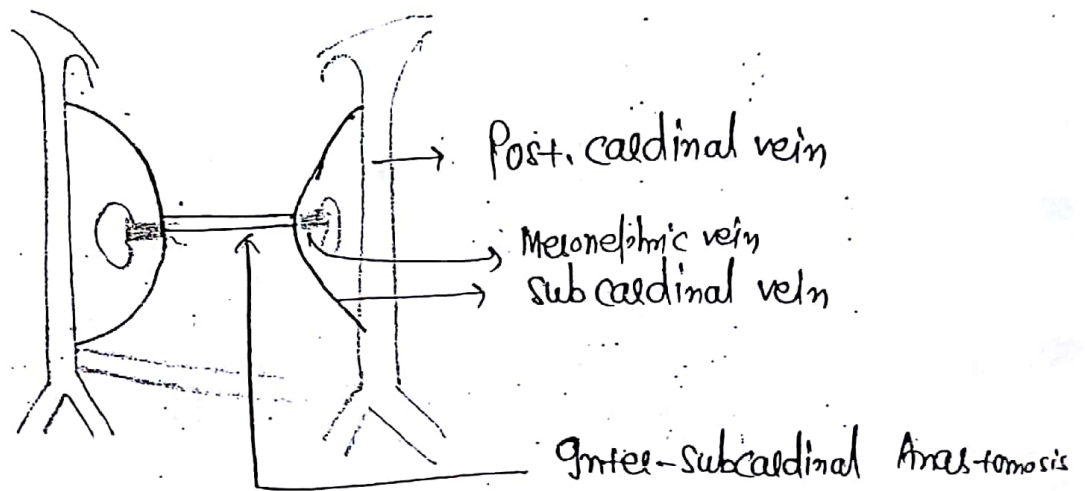 Post. cardinal vein
Mesonephric vein
Subcardinal vein
Inter-subcardinal Anastomosis